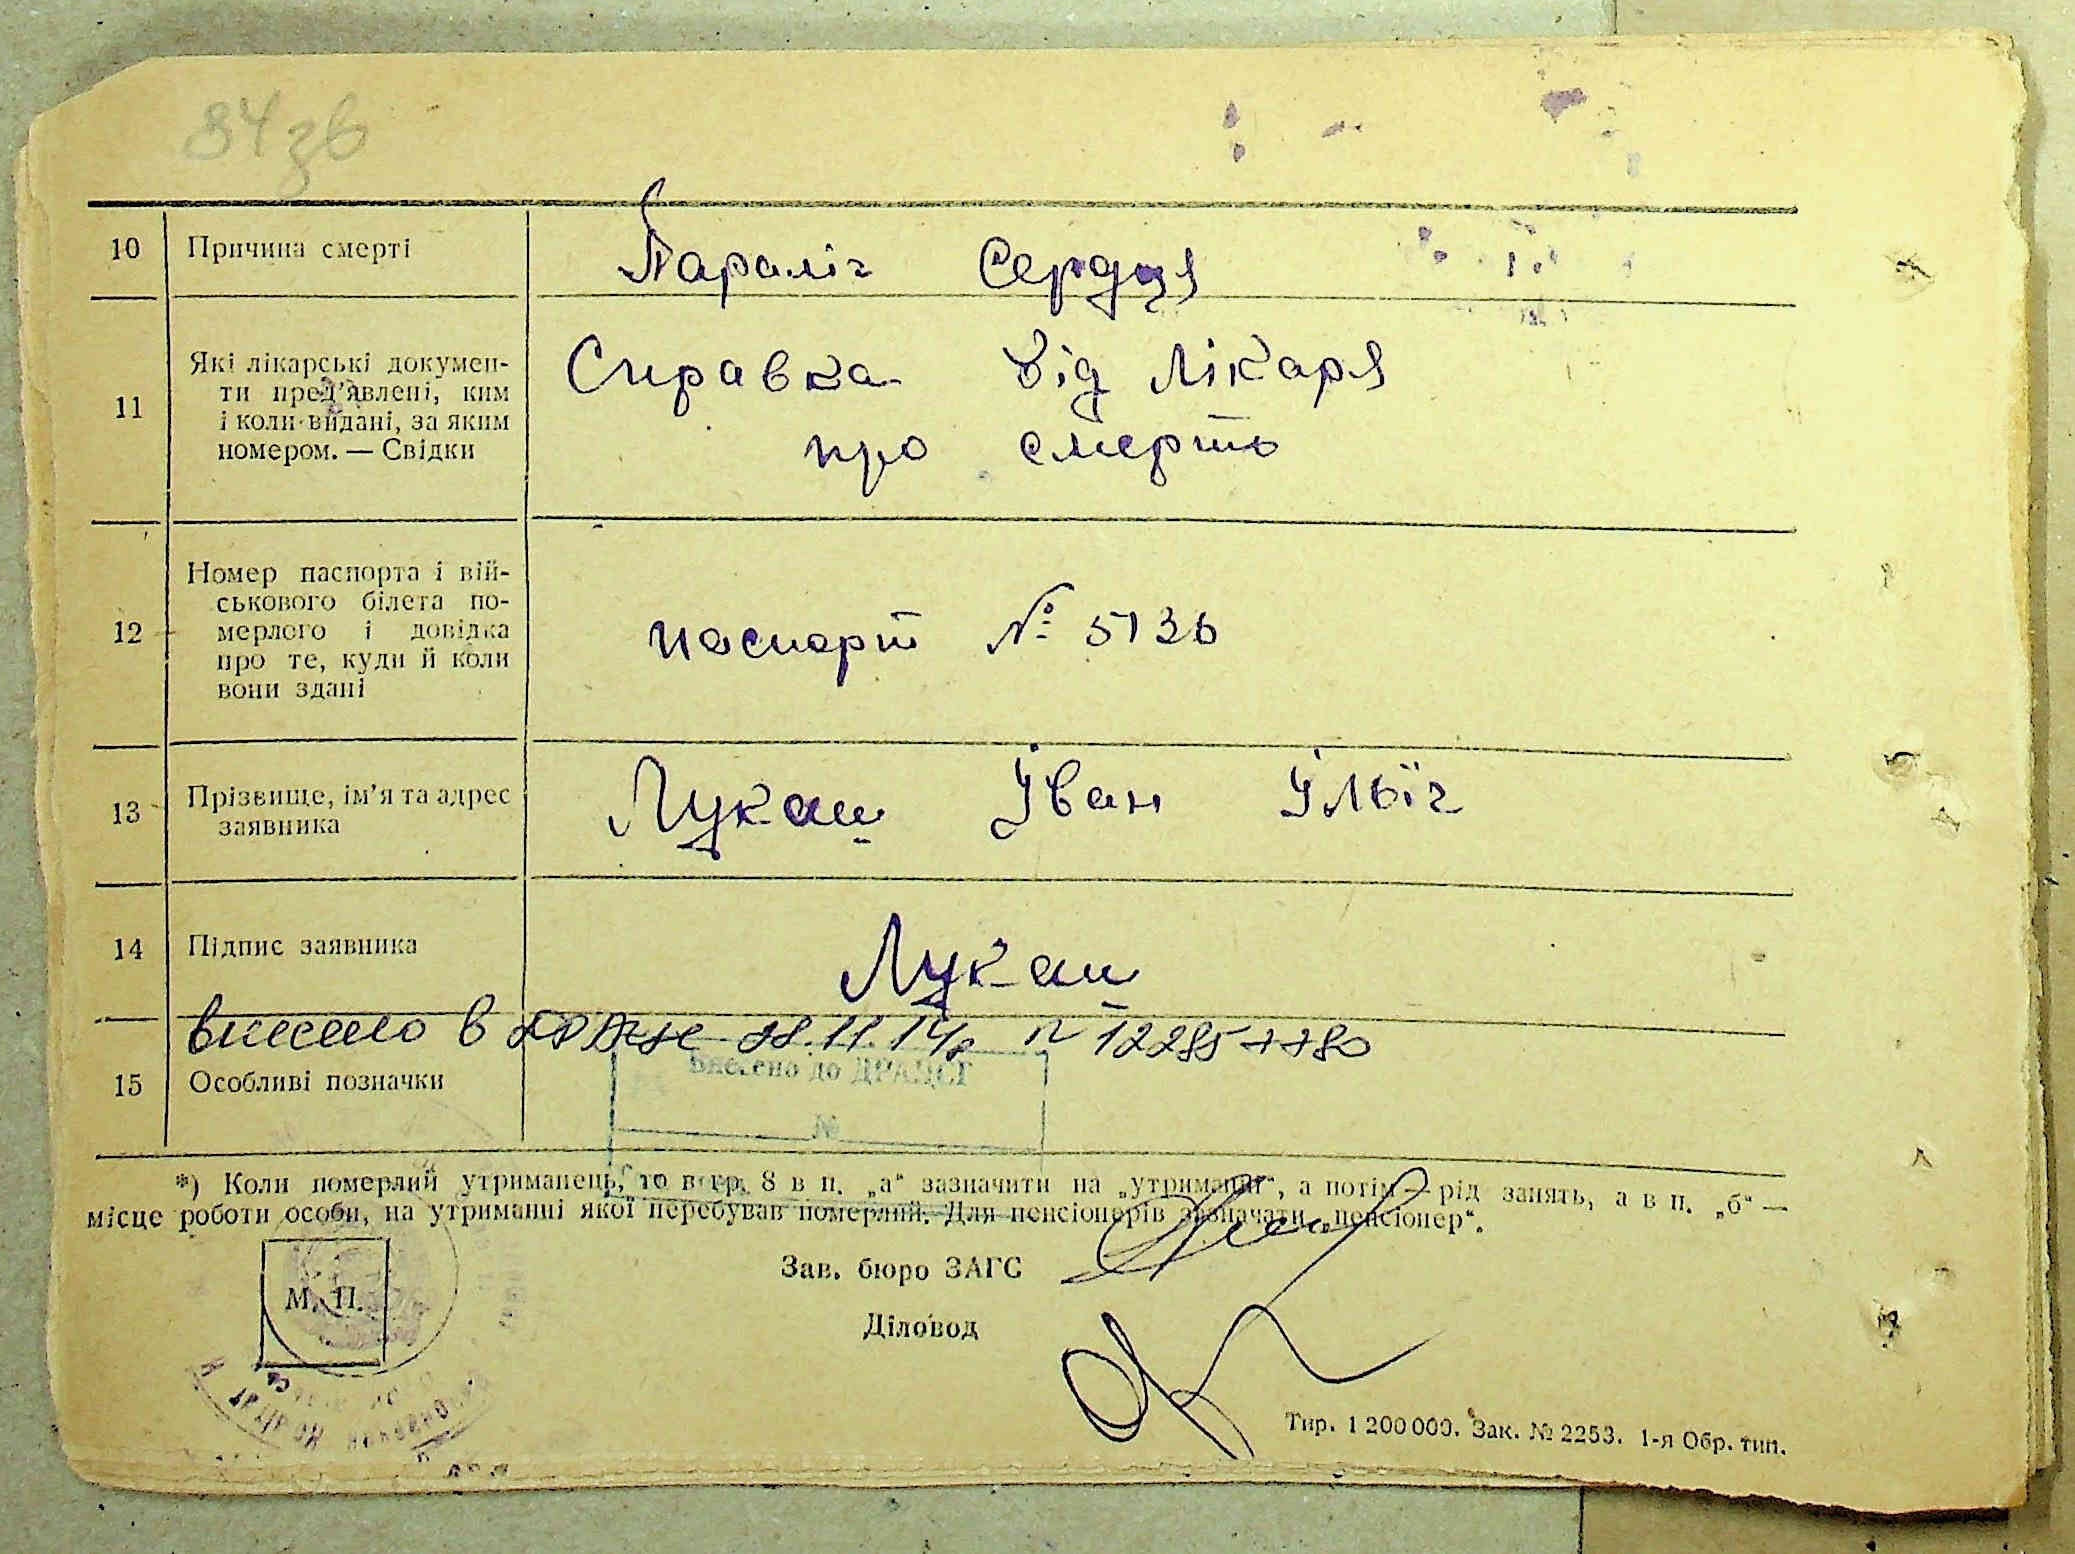 84зв
10 Причина смерті Параліч Сердця
11 Які лікарські докумен-
ти пред'явлені, ким
і коли видані, за яким
номером. — Свідки
Справка від лікаря
про смерть
12 Номер паспорта і вій-
ськового білета по-
мерлого і довідка
про те, куди й коли
вони здані
паспорт № 5136
13 Прізвище, ім'я та адрес
заявника
Лукаш Іван Ільїч
14 Підпис заявника Лукаш
внесено в 28.11.14р n 122857780
Внесено до ДРАЦСГ
15 Особливі позначки
№
*) Коли померлий утриманець, то в гр. 8 в п. „а“ зазначити на „утриманні“, а потім — рід занять, а в п. „б“ —
місце роботи особи, на утриманні якої перебував померлий. Для пенсіонерів зазначати „пенсіонер“.
Зав. бюро ЗАГС
М. П.
Діловод
Тир. 1 200 000. Зак. № 2253. 1-я Обр. тип.